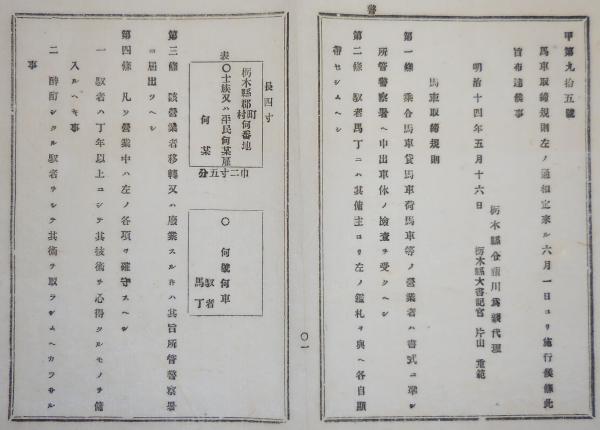 警
甲第九拾五號
馬車取締規則左ノ通相定來ル六月一日ヨリ施行候條此
旨布達候事
明治十四年五月十六日
栃木縣令藤川爲親代理
栃木縣大書記官 片山重範
馬車取締規則
第一條 乘合馬車貸馬車荷馬車等ノ營業者ハ書式ニ準シ
所管警察署ヘ申出車体ノ檢查ヲ受クヘシ
第二條 馭者馬丁ニハ其傭主ヨリ左ノ鑑札ヲ與ヘ各自顯
帶セシムヘシ
〇一
長四寸
表
栃木縣郡町村何番地
〇士族又ハ平民何某雇
何某
巾二寸五分
〇 何號何車
馭者
馬丁
第三條 該營業者移轉又ハ廢業スルトキハ其旨所管警察署
ヘ届出ツヘシ
第四條 凡ソ營業中ハ左ノ各項ヲ確守スヘシ
一 馭者ハ丁年以上ニシテ其技術ヲ心得タルモノヲ傭
入ルヘキ事
二 酔酊シタル馭者ヲシテ其術ヲ取ラシムヘカラサル
事